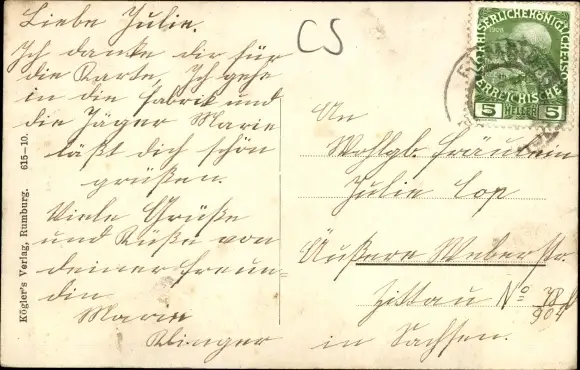 Liebe Julie.
Ich danke dir für
die Karte. Ich gehe
in die Fabrik und
die Jäger Marie
läßt dich schön
grüßen.
Viele Grüße
und Küße von
deiner Freun-
din
Marie
Klinger
CS
KAISERLICHE KÖNIGLICHE
1908
ÖSTERREICHISCHE
5 HELLER 5
An
Wohlgb. Fräulein
Julie Cop
Äußere Weberstr.
Zittau No 38
in Sachsen.
Kögler's Verlag, Rumburg. 615-10.